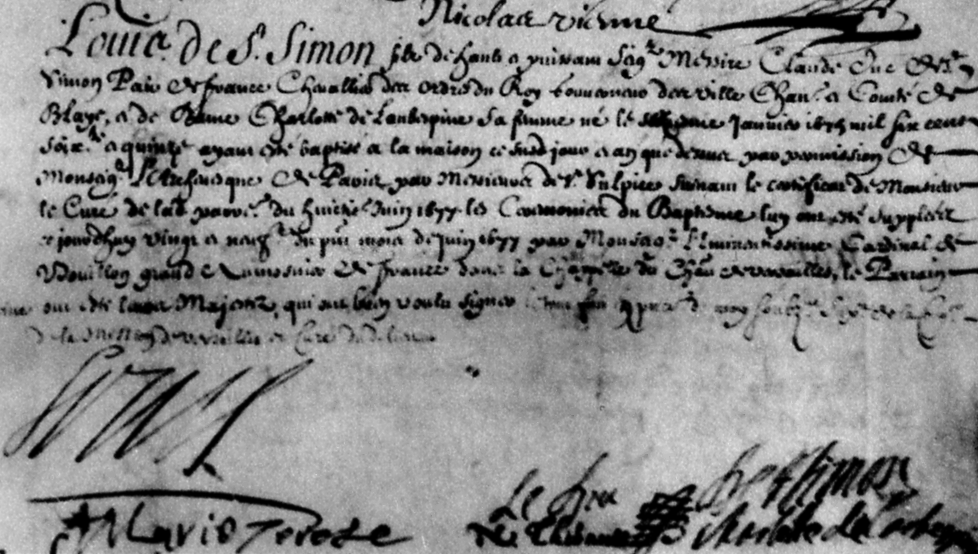 Nicolas
Louis de St. Simon fils de haut & puissant Seigr Messire Claude Duc de St.
Simon Pair de france Chevallier des ordres du Roy Gouverneur des ville Chau. & Comté de
Blaye, & de Dame Charlotte de Laubespine sa femme né le Janvier 1675 mil six cent
soixte & quinze ayant été baptisé a la maison ce susd jour & an que dessus par permission de
Monseigr l'Archevesque de Paris par Messieurs de St. Sulpice suivant le certificat de Monsieur
le Curé de lad parroe. du huictie. Juin 1677 les Ceremonies du Baptesme luy ont été suppleées
jourdhuy vingt & neufe du pnt mois de Juin 1677 par Monseigr. l'Eminentissime Cardinal de
Bouillon grand Aumosnier de france dans la Chappelle du Chau de versailles, le Parrain
ont été leurs Majestez, qui ont bien voulu signer
de la Mission de versailles et Curé dud lieu
Louis
Marie Terese